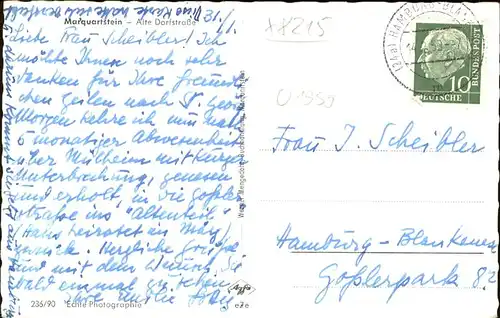 Marquartstein – Alte Dorfstraße
31./1.
Liebe Frau Scheibler! Ich
möchte Ihnen noch sehr
danken für Ihre freundli-
chen Zeilen nach St. Georg
Morgen kehre ich nun nach
6 monatiger Abwesenheit
über Mülheim mit kurzer
Unterbrechung, genesen
und erholt, in die Goßler-
straße ins "Altenteil"
(Hans heiratet im März)
zurück. Herzliche Grüße
und mit dem Wunsch, Sie
bald einmal zu sehen
Ihre
236/90
Echte Photographie
Agfa
e7e
x8215
01959
(24a) HAMBURG-BLANKENESE
10
DEUTSCHE
BUNDESPOST
Frau J. Scheibler
Hamburg-Blankenese
Goßlerpark 82